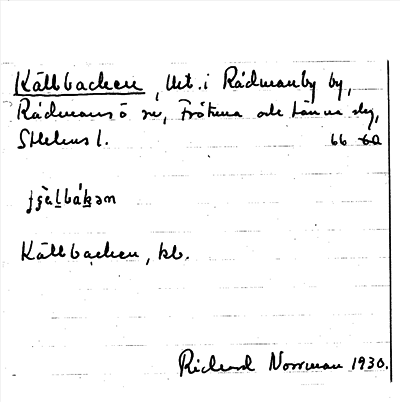 Källbacken, Urt. i Rådmanby by,
Rådmansö sn, Frötuna och Länna slg,
Sthlms l. 66 60
Källbacken, kb.
Richard Norrman 1930.